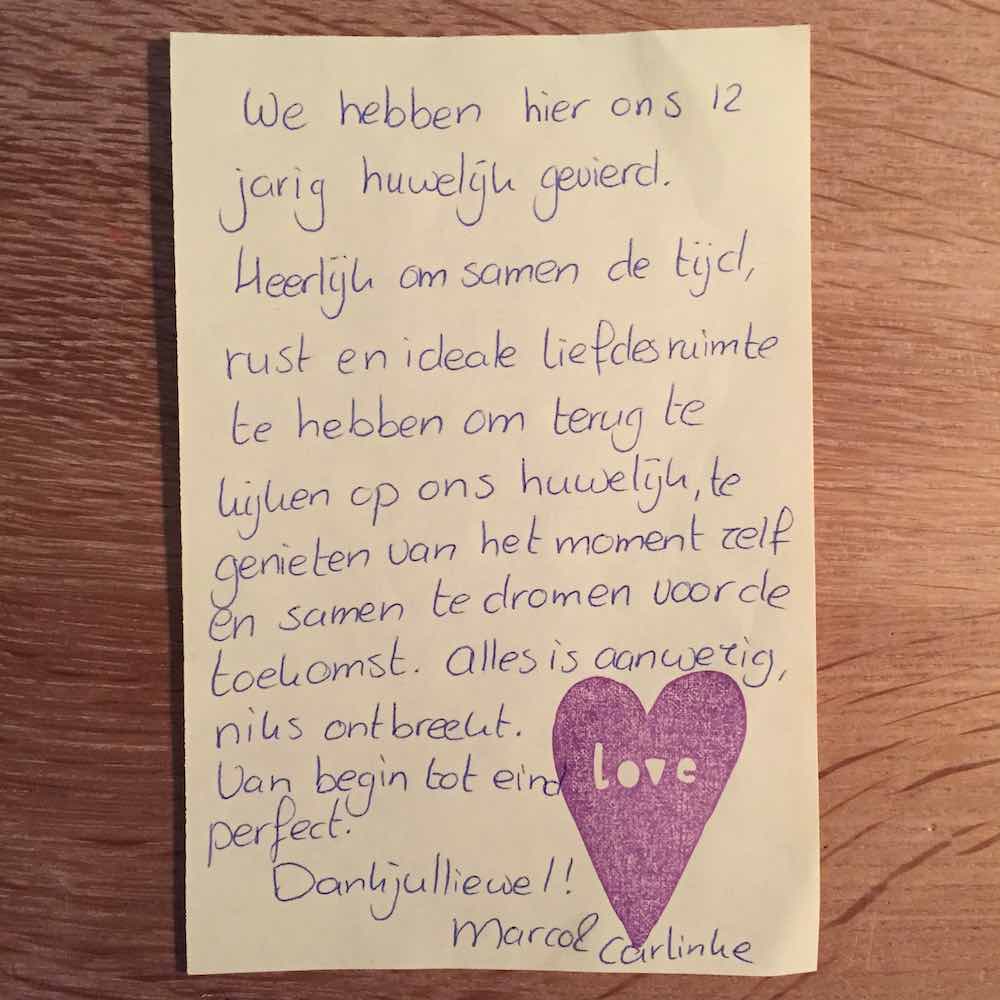 We hebben hier ons 12
jarig huwelijk gevierd.
Heerlijk om samen de tijd,
rust en ideale liefdesruimte
te hebben om terug te
kijken op ons huwelijk, te
genieten van het moment zelf
en samen te dromen voor de
toekomst. Alles is aanwezig,
niks ontbreekt.
Van begin tot eind
perfect.
love
Dankjulliewel!
Marcol
Carlinke